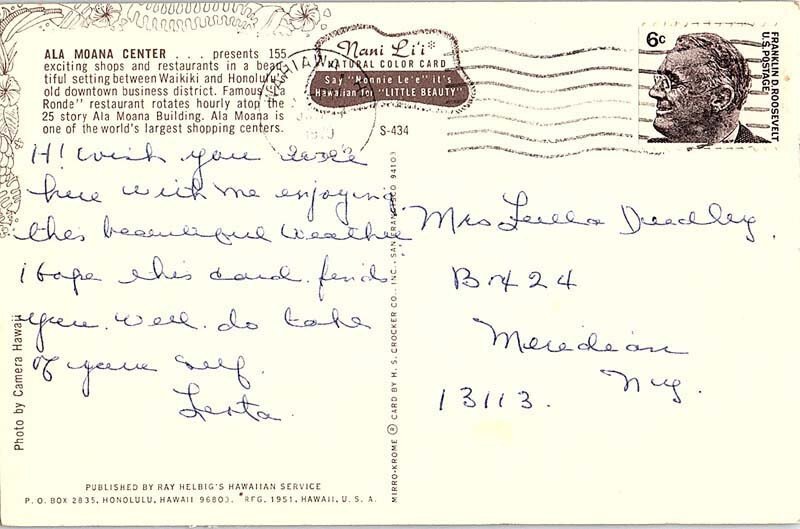 ALA MOANA CENTER . . . presents 155
exciting shops and restaurants in a beau-
tiful setting between Waikiki and Honolulu's
old downtown business district. Famous "La
Ronde" restaurant rotates hourly atop the
25 story Ala Moana Building. Ala Moana is
one of the world's largest shopping centers.
Nani Li'i*
NATURAL COLOR CARD
Say "Nonnie Le'e" it's
Hawaiian for "LITTLE BEAUTY"
S-434
6c
FRANKLIN D. ROOSEVELT
U.S. POSTAGE
WAHIAWA
Hi Wish you were
here with me enjoying
this beautiful weather
I hope this card finds
you well. do take
of your self.
Mrs Luella Dudley.
Bx 424
Meridian
N.Y.
13113.
Photo by Camera Hawaii
MIRRO-KROME ® CARD BY H. S. CROCKER CO., INC., SAN FRANCISCO 94103
PUBLISHED BY RAY HELBIG'S HAWAIIAN SERVICE
P. O. BOX 2835, HONOLULU, HAWAII 96803. *REG. 1951, HAWAII, U. S. A.